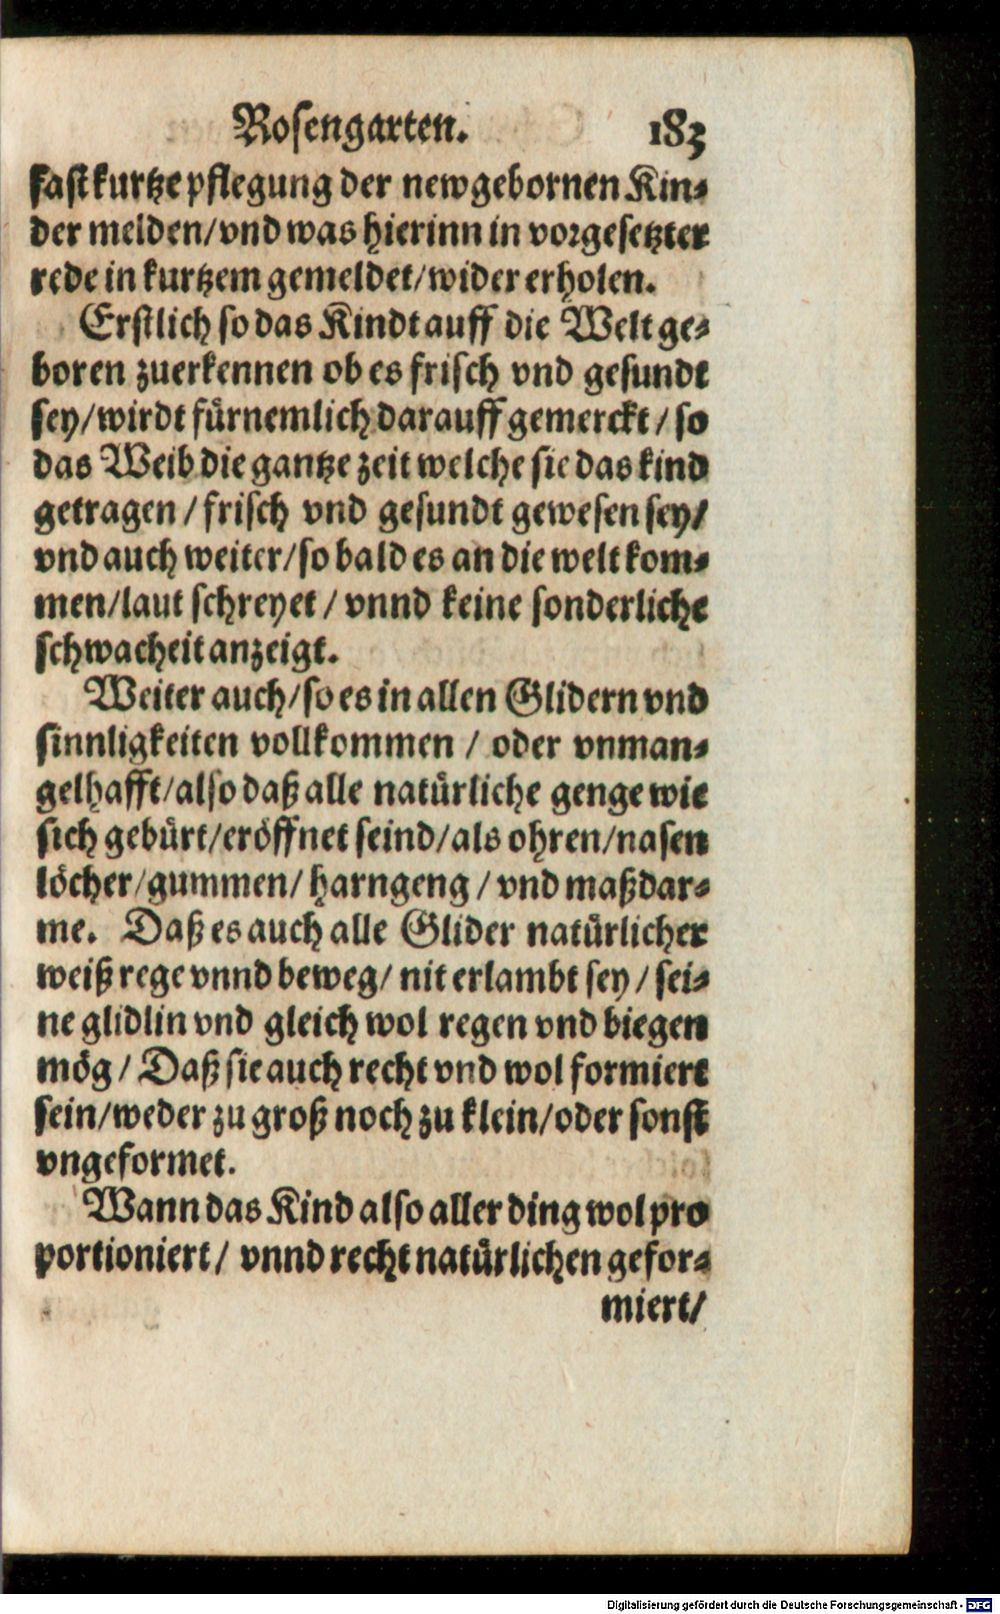 Rosengarten. 183
fast kurtze pflegung der newgebornen Kin⸗
der melden/vnd was hierinn in vorgesetzter
rede in kurtzem gemeldet/wider erholen.
Erstlich so das Kindt auff die Welt ge⸗
boren zuerkennen ob es frisch vnd gesundt
sey/wirdt fürnemlich darauff gemerckt/so
das Weib die gantze zeit welche sie das kind
getragen/frisch vnd gesundt gewesen sey/
vnd auch weiter/so bald es an die welt kom⸗
men/laut schreyet/vnnd keine sonderliche
schwacheit anzeigt.
Weiter auch/so es in allen Glidern vnd
sinnligkeiten vollkommen/oder vnman⸗
gelhafft/also daß alle natürliche genge wie
sich gebürt/eröffnet seind/als ohren/nasen
löcher/gummen/harngeng/vnd maßdar⸗
me. Daß es auch alle Glider natürlicher
weiß rege vnnd beweg/nit erlambt sey/sei⸗
ne glidlin vnd gleich wol regen vnd biegen
mög/Daß sie auch recht vnd wol formiert
sein/weder zu groß noch zu klein/oder sonst
vngeformet.
Wann das Kind also aller ding wol pro
portioniert/vnnd recht natürlichen gefor⸗
miert/
Digitalisierung gefördert durch die Deutsche Forschungsgemeinschaft - DFG